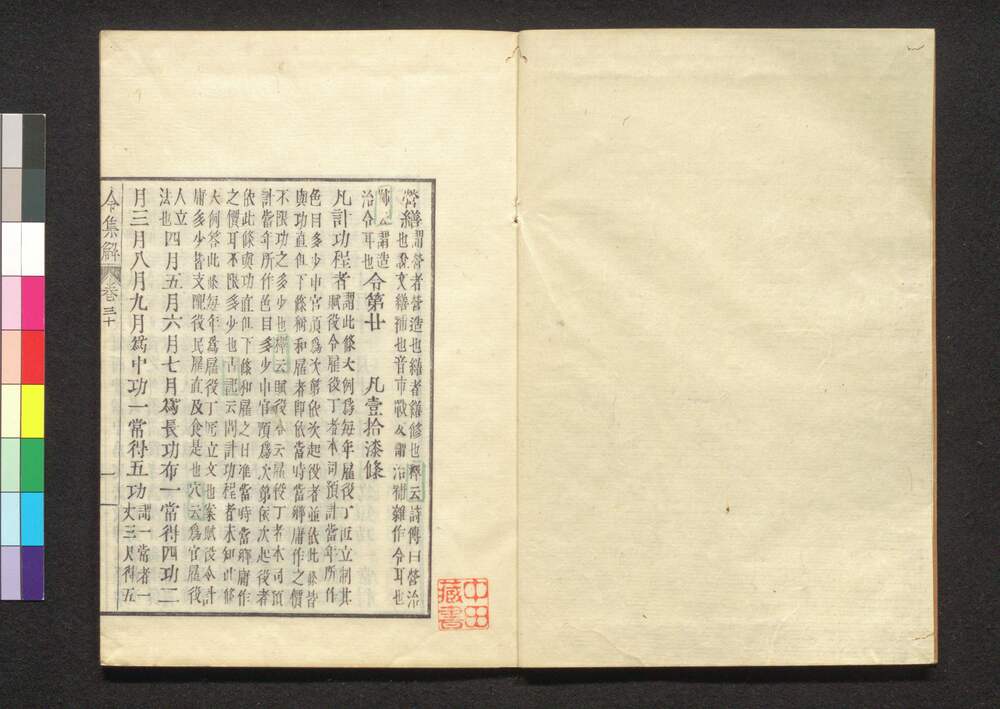 營繕謂營者營造也繕者繕修也釋云詩傳曰營治
也說文繕補也音市戰反謂治補雜作令耳也
師云謂造
治令耳也
令第廿　凡壹拾漆條
凡計功程者謂此條大例爲每年雇役丁匠立制其
賦役令雇役丁者本司預計當年所作
色目多少申官預爲次第依次起役者並依此條皆
與功直但下條稱和雇者即依當時當鄉庸作之價
不限功之多少也釋云賦役令云雇役丁者本司預
計當年所作色目多少申官預爲次第依次起役者
依此條與功直但下條和雇之日准當時當鄉庸作
之價耳不限多少也古記云問計功程者未知此條
大例答此條每年爲雇役丁匠立文也案賦役令計
庸多少皆支配役民雇直及食是也穴云爲官雇役
人立
法也
四月五月六月七月爲長功布一常得四功二
月三月八月九月爲中功一常得五功謂一常者一
丈三尺得五
令集解　卷三十　一
中田
藏書